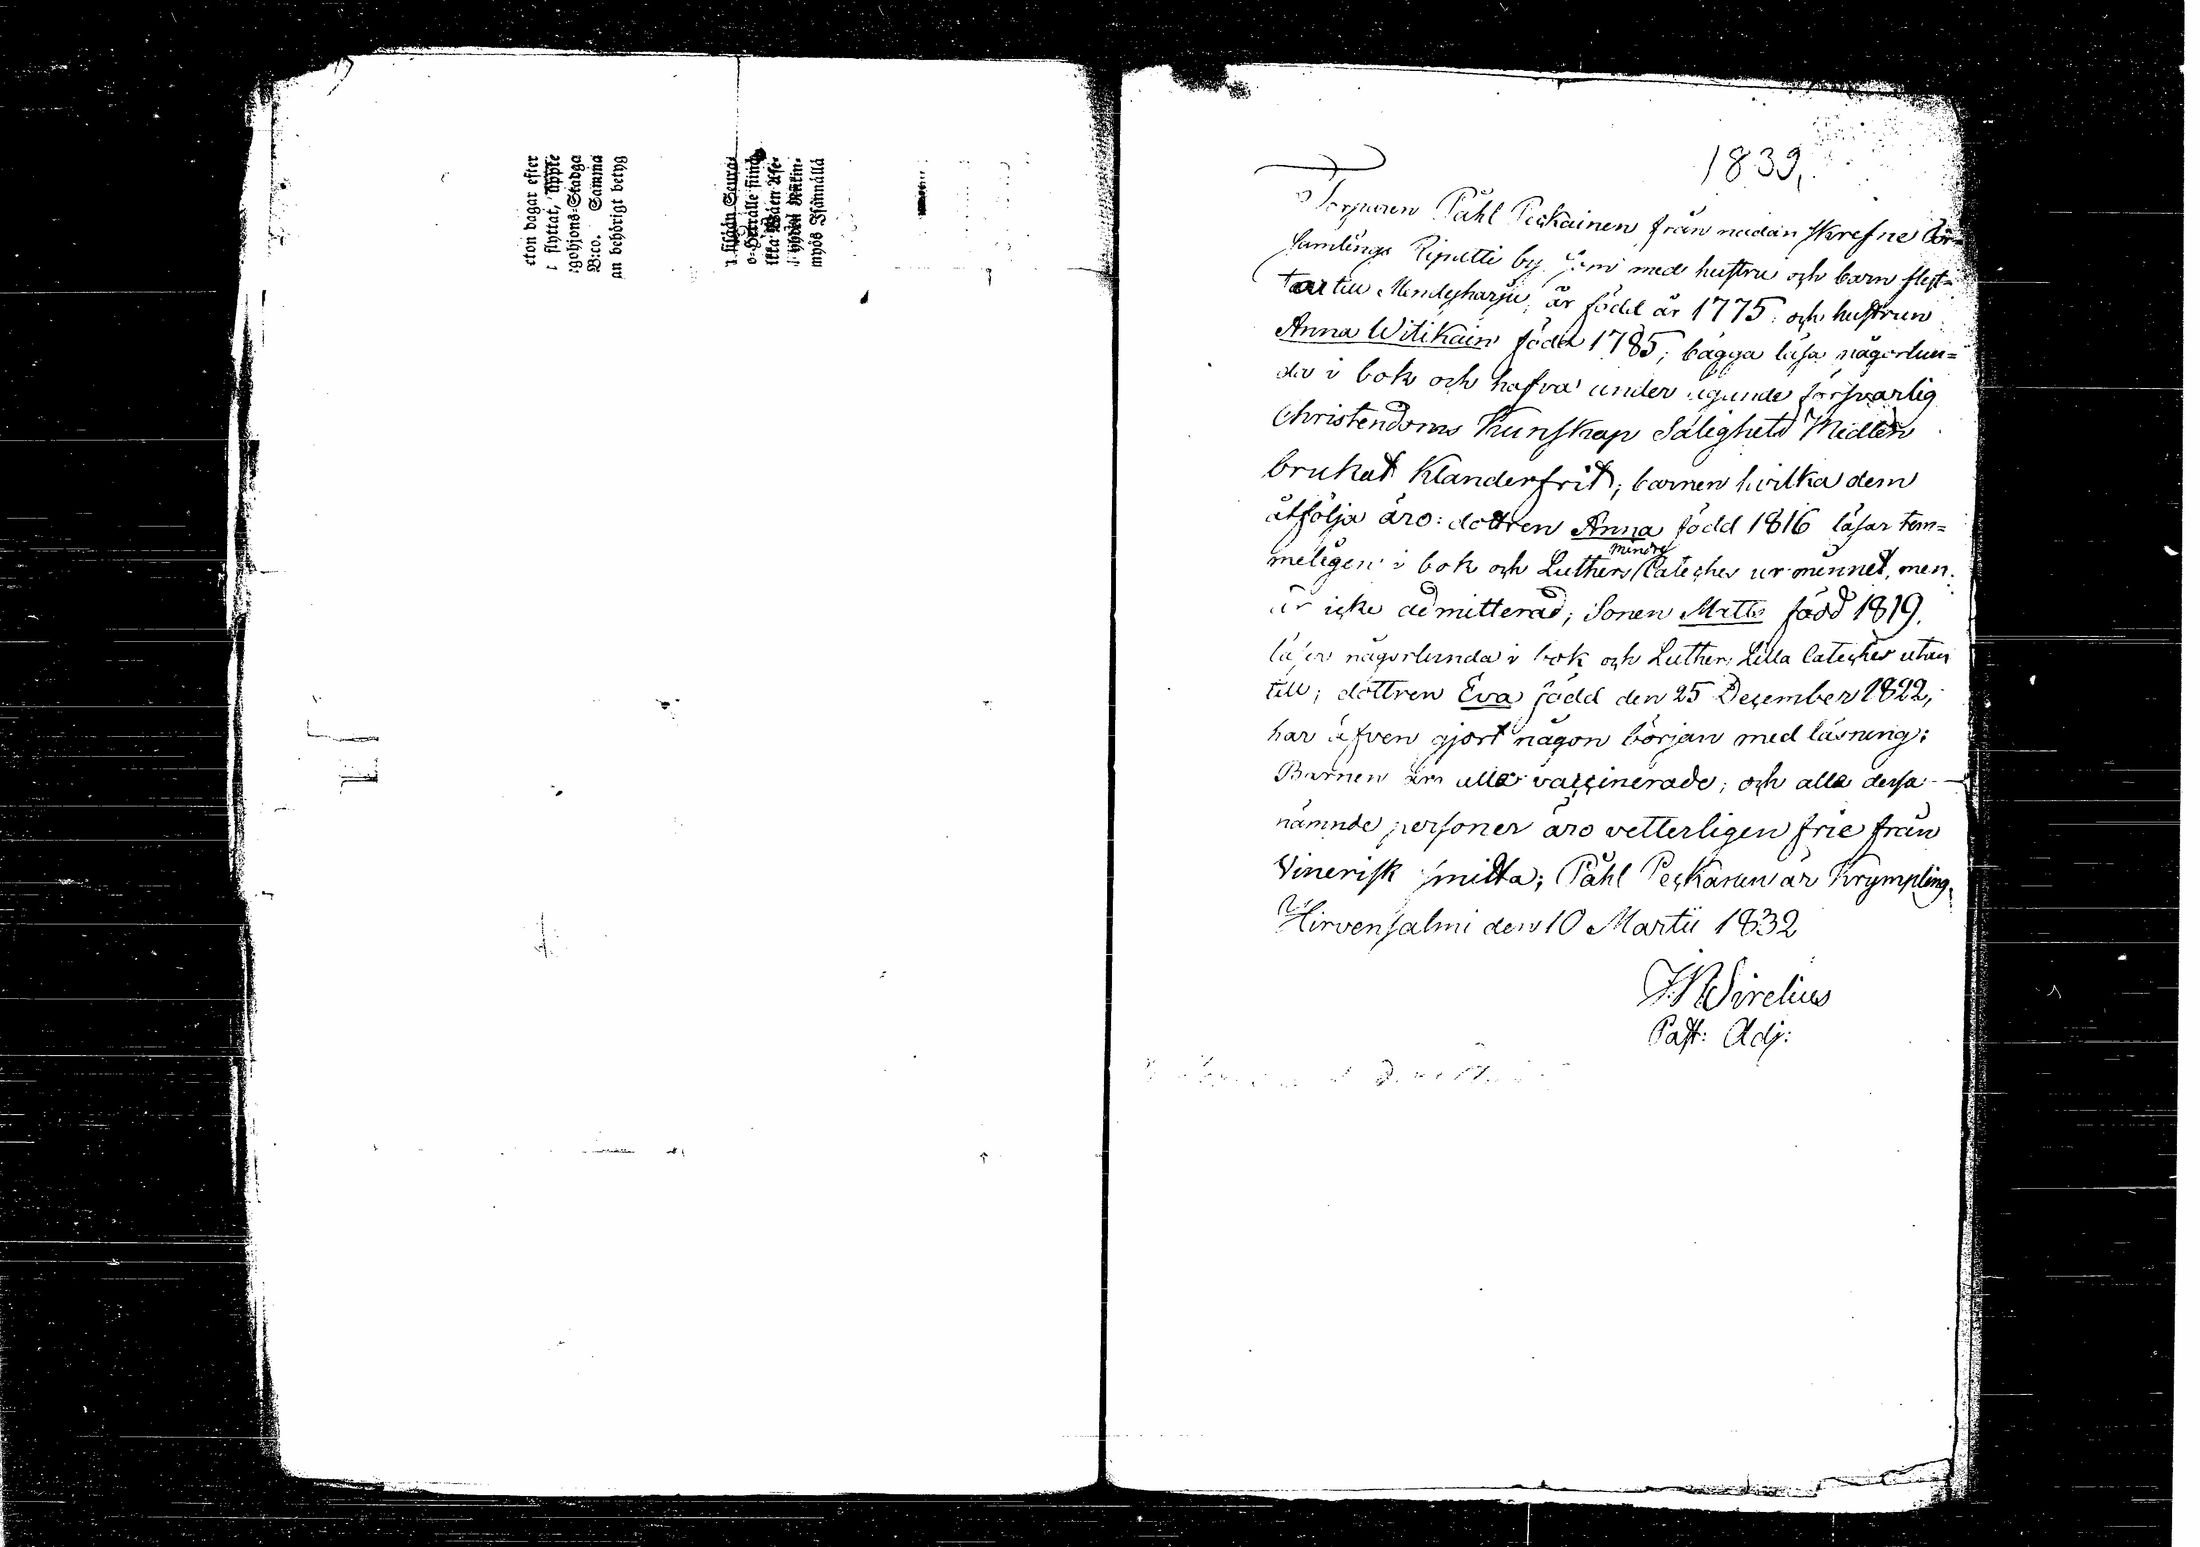 eton dagar efter
r flyttat, uppte
:gohjons-Stadga
B:co. Samma
an behörigt betyg
o-Herralle siinä
myös Isännällä
1839,
Torparen Påhl Peçkainen från nedan skrefne För=
samlings Ripatti by som med hustru och barn flyt=
tar till Mendyharju, är född år 1775. och hustrun
Anna Witikain född 1785; bägga läsa någorlun=
da i bok och hafva under ägande försvarlig
Christendoms Kunskap Salighets Medlen
brukat Klanderfrit; barnen hvilka dem
åtfölja äro: dottren Anna född 1816 läsar tem=
meligen i bok och Luthers mindre Cateches ur minnet, men
är icke admitterad; Sonen Matts född 1819.
läser någorlunda i bok och Luthers Lilla Cateches utan
till; dottren Eva född den 25 December 1822,
har äfven gjort någon början med läsning;
Barnen äro alla vaccinerade; och alla dessa
nämnde personer äro vetterligen frie från
Vinerisk smitta; Påhl Peçkainen är Krympling.
Hirvensalmi den 10 Martii 1832
Sirelius
Past: Adj: